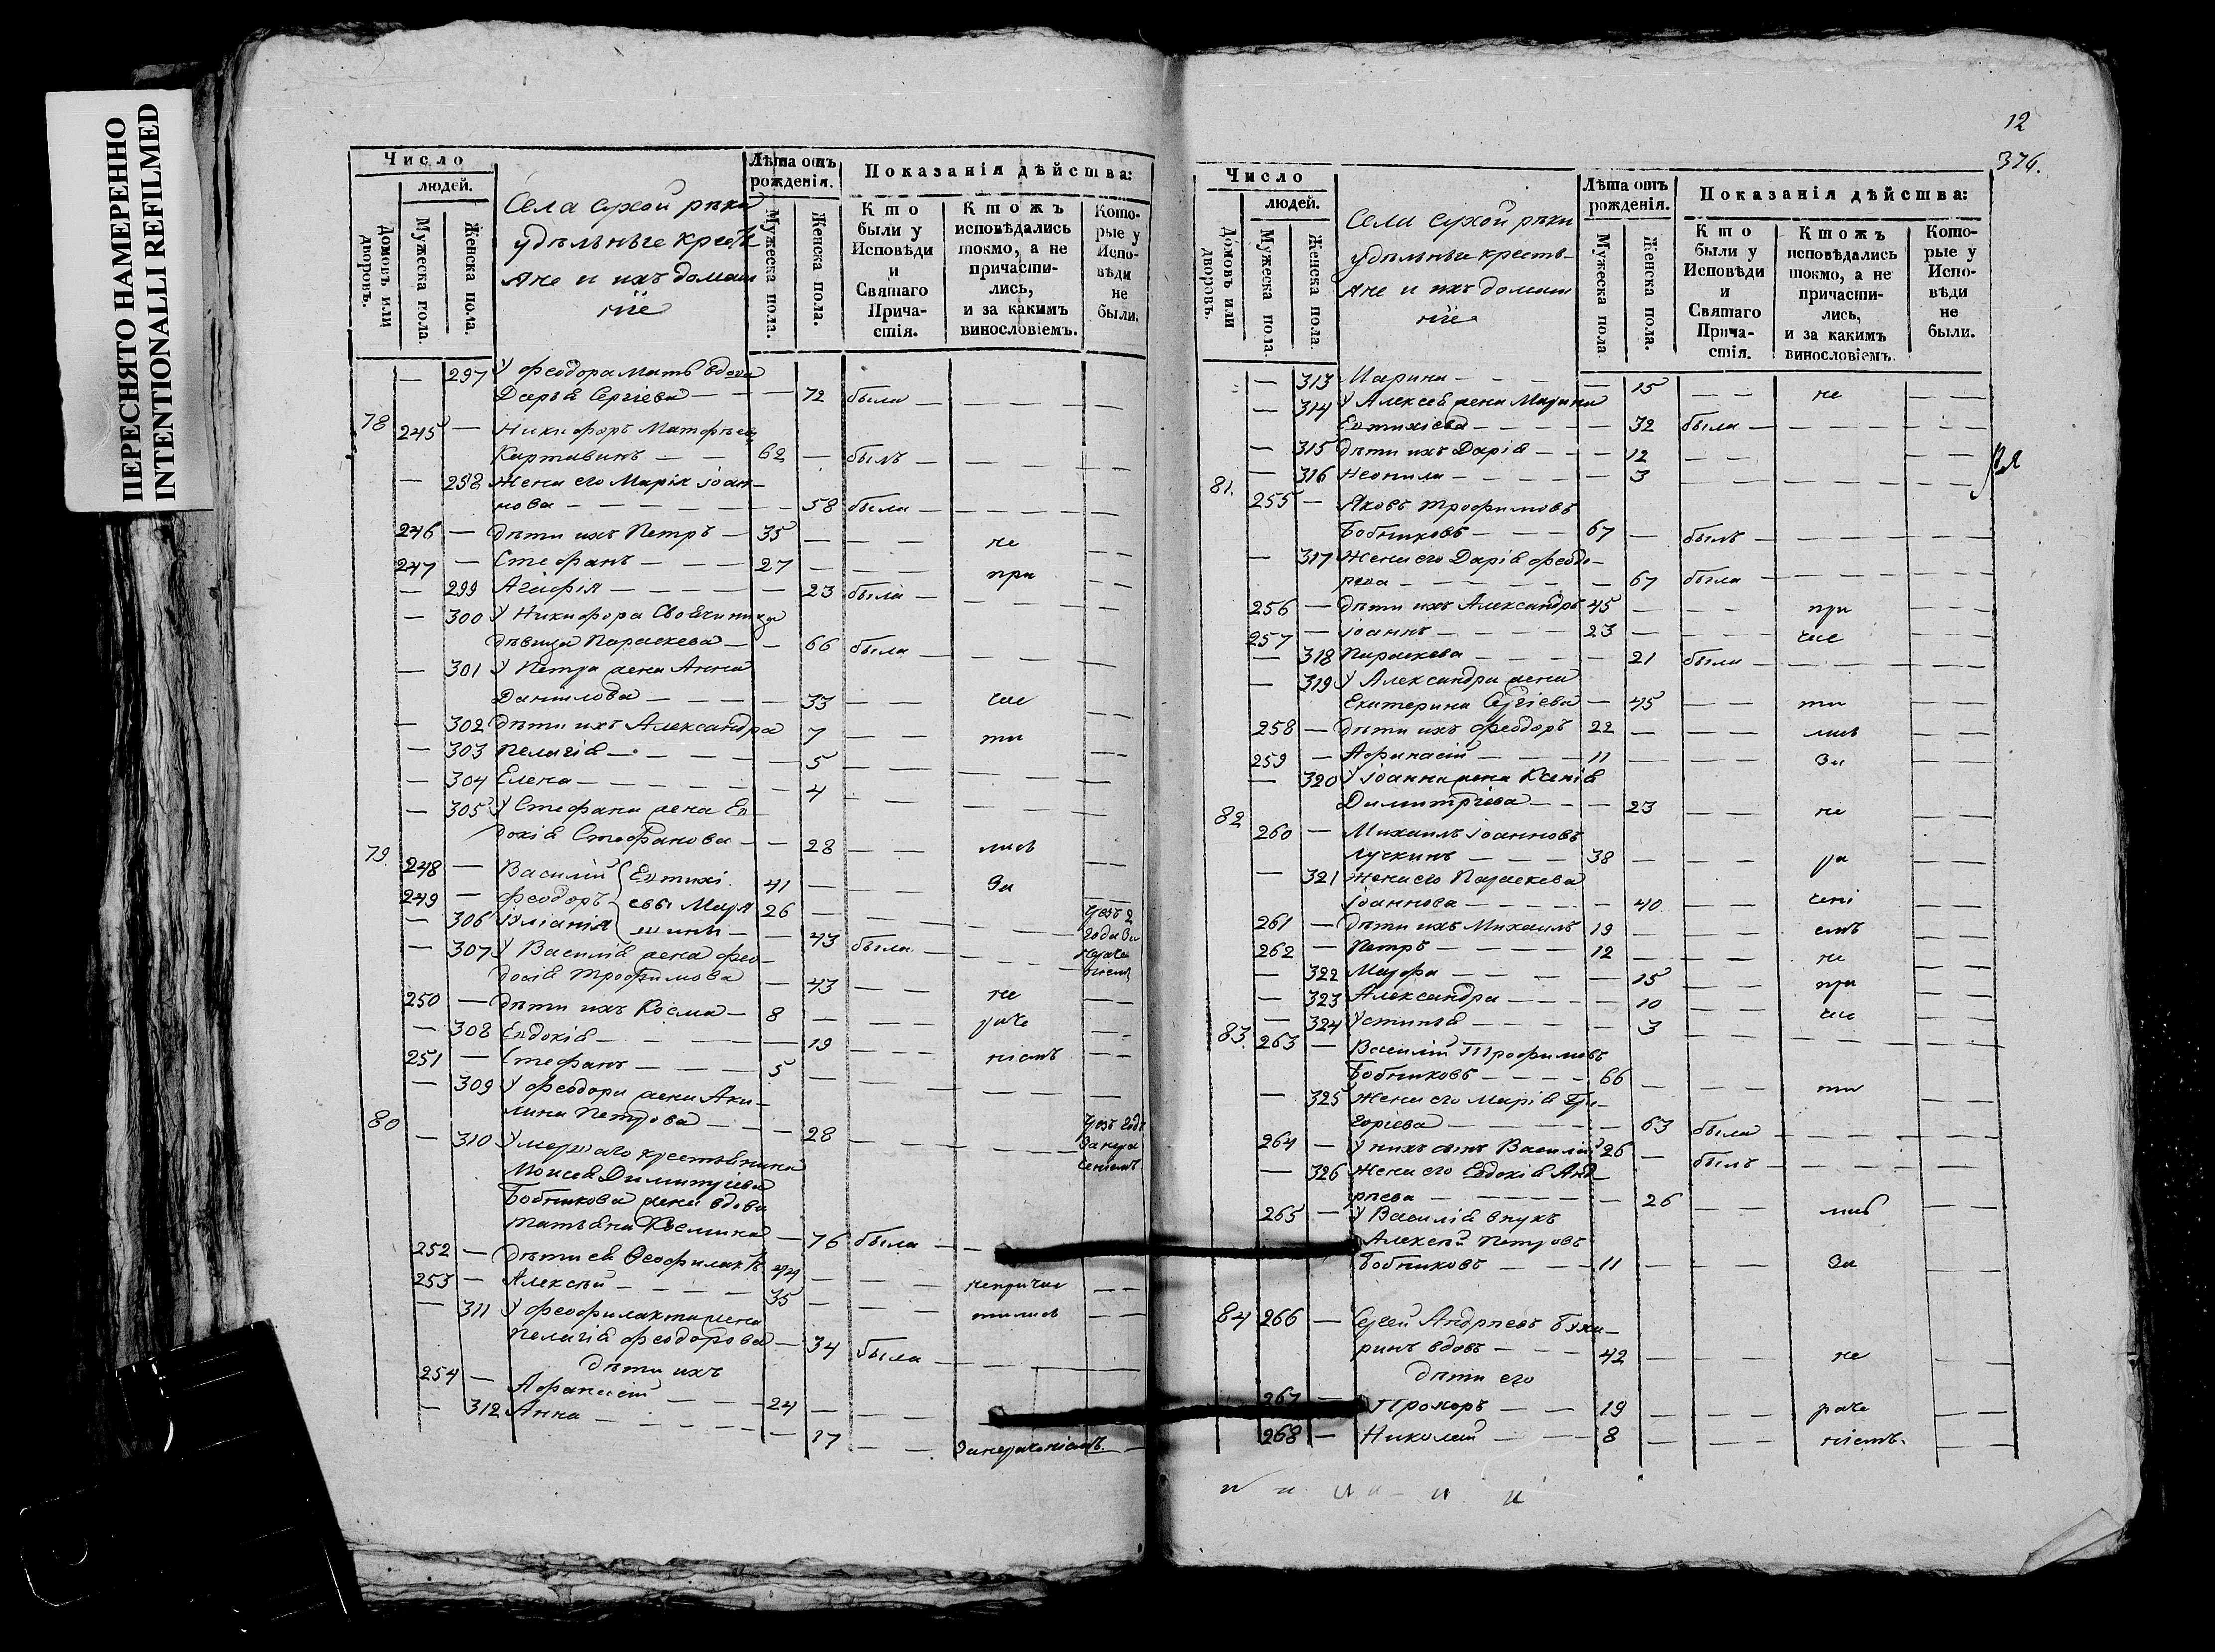 ПЕРЕСНЯТО НАМЕРЕННО
INTENTIONALLI REFILMED
Число
людей.
Домовъ или дворовъ.
Мужеска пола.
Женска пола.
Села сухой рѣки
удѣльные крестъ
яне и ихъ домаш
ніе
Лѣта отъ рожденія.
Мужеска пола.
Женска пола.
Показанія дѣйства:
Кто были у Исповѣди и Святаго Причастія.
Ктожъ исповѣдались токмо, а не причастились, и за какимъ винословіемъ.
Которые у Исповѣди не были.
— 297 У Феодора мать вдова
Дарья Сергіева — — 72 была — — — —
78 245 — Никифоръ Матѳѣевъ
Картавинъ — — 62 — былъ — — — —
— 258 Жена его Марія Іоан-
нова — — — 58 была — — — —
246 — Дѣти ихъ Петръ — 35 — — — не — —
247 — Стефанъ — — — 27 — — — при — —
— 299 Агафія — — — — 23 была — — — —
— 300 У Никифора своячиница
дѣвица Параскева — — 66 была — — — —
— 301 У Петра жена Анна
Данилова — — — — 33 — — час — —
— 302 Дѣти ихъ Александра 7 — — ти — —
— 303 Пелагія — — — — 5 — — — —
— 304 Елена — — — — 4 — — — —
— 305 У Стефана жена Ев-
докія Стефанова — — 28 — — лись — —
79. 248 — Василій Евтихі 41 — — — За
249 — Феодоръ евы Мар 26 — — — Чрезъ 2
— 306 Іуліанія — — 43 была — — года за
нераче
ніемъ
— 307 У Василія жена Фео-
досія Трофимова — 43 — — не — —
250 — Дѣти ихъ Косма — 8 — — — раче — —
— 308 Евдокія — — — — 19 — — — ніемъ — —
251 — Стефанъ — — — 5 — — — — —
— 309 У Феодора жена Аки-
лина Петрова — — — 28 — — — Чрезъ годъ
за нера
ченіемъ
80 — 310 Умершаго крестьянина
Моисея Димитріева
Бобникова жена вдова
Татьяна — 76 была — —
252 — Дѣти ея Ѳеофилактъ 44 — — —
253 — Алексѣй — — — — 35 — — — непричас — —
— 311 У Феофилакта жена тились — —
Пелагія Феодорова — 34 была — — —
дѣти ихъ
254 — Афанасій — — — 24 — — — —
— 312 Анна — — — — — 17 — — За нераченіемъ —
12
376.
Число
людей.
Домовъ или дворовъ.
Мужеска пола.
Женска пола.
Села сухой рѣки
удѣльные кресть-
яне и ихъ домаш
ніе
Лѣта отъ рожденія.
Мужеска пола
Женска пола.
Показанія дѣйства:
Кто были у Исповѣди и Святаго Причастія.
Ктожъ исповѣдались токмо, а не причастились, и за какимъ винословіемъ.
Которые у Исповѣди не были.
— 313 Марина — — — — 15 — — не — —
— 314 У Алексея жена Марина
Евтихіева — — — — 32 была — — — —
— 315 Дѣти ихъ Дарія — — — 12 — — — —
— 316 Неонила — — — — — 3 — — — —
81. 255 — Яковъ Трофимовъ
Бобниковъ — — — 67 — былъ — — — —
— 317 Жена его Дарія Феодо-
рова — — — — — 67 была — — — —
256 — Дѣти ихъ Александръ 45 — — — при — —
257 — Іоаннъ — — — — 23 — — — час — —
— 318 Параскева — — — — 21 была — — — —
— 319 У Александра жена
Екатерина Сергіева — 45 — — ти — —
258 — Дѣти ихъ Феодоръ 22 — — — лись — —
259 — Афанасій — — — 11 — — — За — —
— 320 У Іоанна жена Ксенія
Димитріева — — — 23 — — не — —
82 260 — Михаилъ Іоанновъ
Лучкинъ — — — 38 — — — ра — —
— 321 Жена его Параскева
Іоаннова — — — — 40 — — чені — —
261 — Дѣти ихъ Михаилъ 19 — — — емъ — —
262 — Петръ — — — — 12 — — — не — —
— 322 Марфа — — — — 15 — — при — —
— 323 Александра — — — — 10 — — час — —
— 324 Устинья — — — — 3 — — — —
83. 263 — Василій Трофимовъ
Бобниковъ — — — 66 — — — ти — —
— 325 Жена его Марія Гри-
горіева — — — — — 63 была — — — —
264 — У нихъ сынъ Василій 26 — былъ — — — —
— 326 Жена его Евдокія Анд-
рѣева — — — — — 26 — — лись — —
265 — У Василія внукъ
Алексѣй Петровъ
Бобниковъ — — — 11 — — — За — —
84 266 — Сергей Андрѣевъ
ринъ вдовъ — — — 42 — — — не — —
дѣти его
267 — Прохоръ — — 19 — — — раче — —
268 — Николай — — — 8 — — — ніемъ. — —